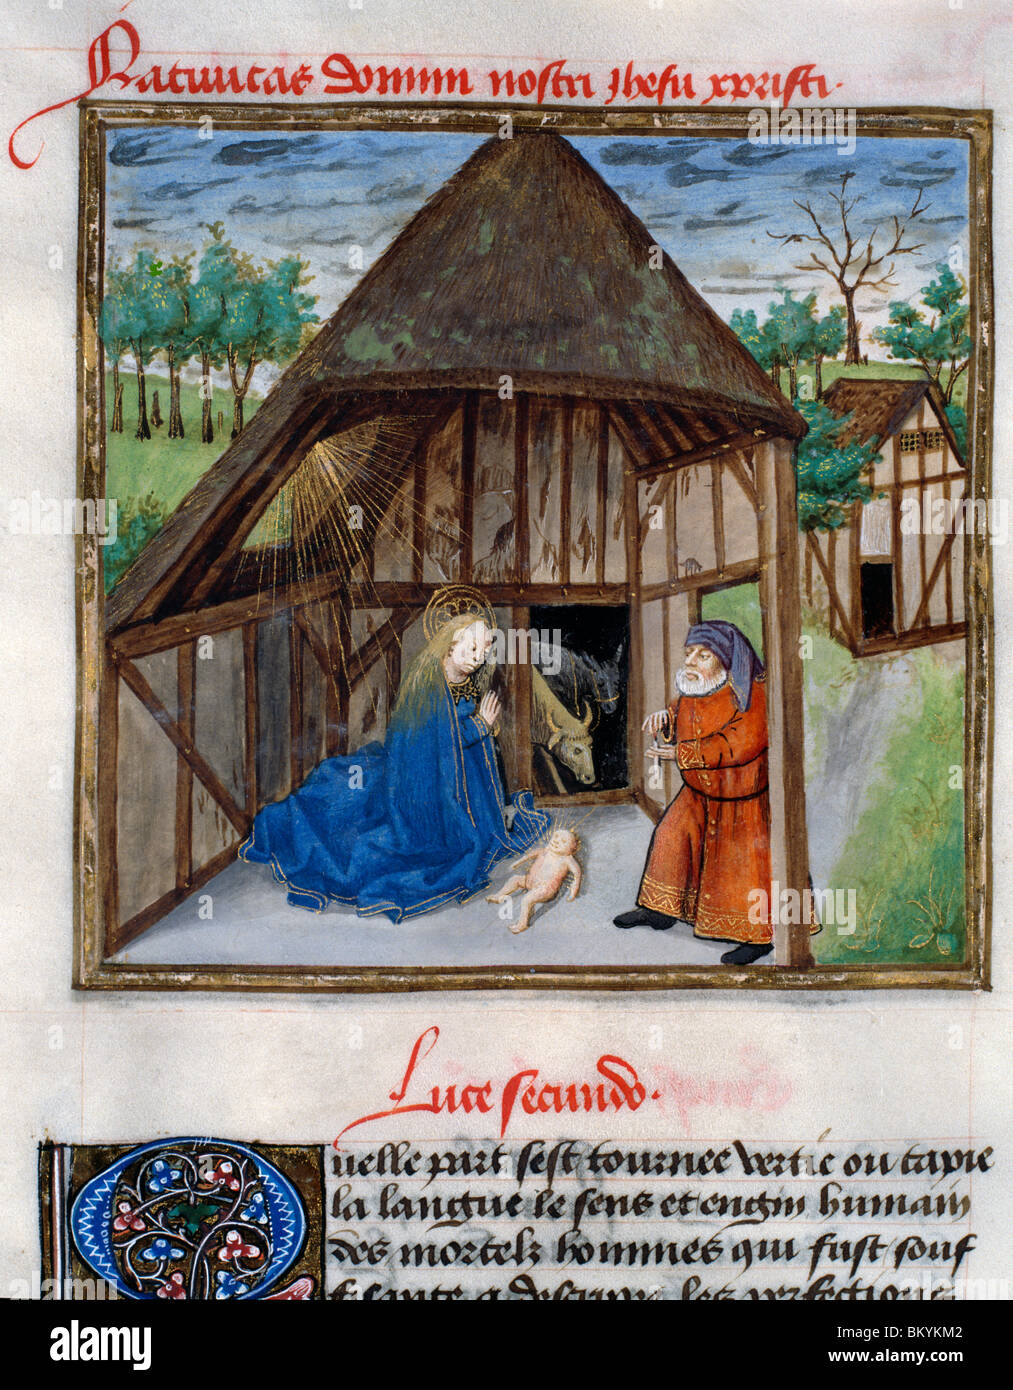 Natiuitas domini nostri Jhesu xpristi.
Luce secundo.
Quelle part sest tournee vertie ou tapie
la langue le sens et engin humain
des mortelz hommes qui fust souf
fisante a descripre les perfections
alamy
Image ID: BKYKM2
www.alamy.com